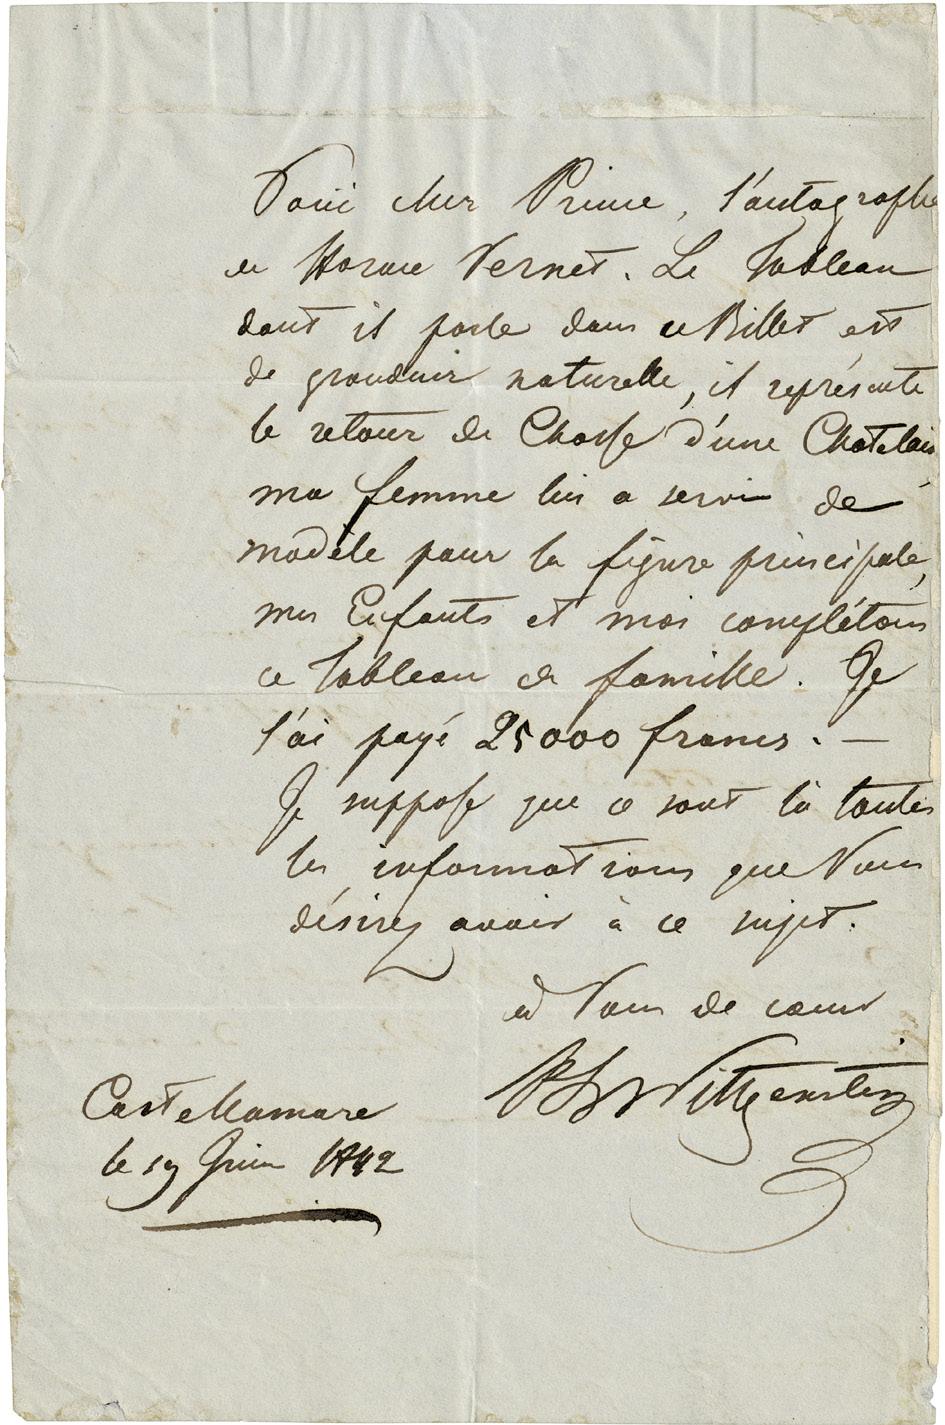 Voici cher Prince, l'autographe
de Horace Vernet. Le Tableau
dont il parle dans ce Billet est
de grandeur naturelle, il représente
le retour de Chasse d'une Chatelaine,
ma femme lui a servi de
modèle pour la figure principale,
mes Enfants et moi complétons
ce Tableau de famille. Je
l'ai payé 25000 francs. —
Je suppose que ce sont là toutes
les informations que Vous
désirez avoir à ce sujet.
à Vous de cœur
Wittgenstein
Castellamare
le 19 Juin 1842